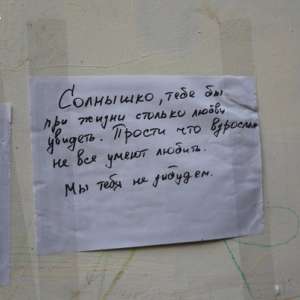 Солнышко, тебе бы
при жизни столько любви
увидеть. Прости что взрослые
не все умеют любить.
Мы тебя не забудем.